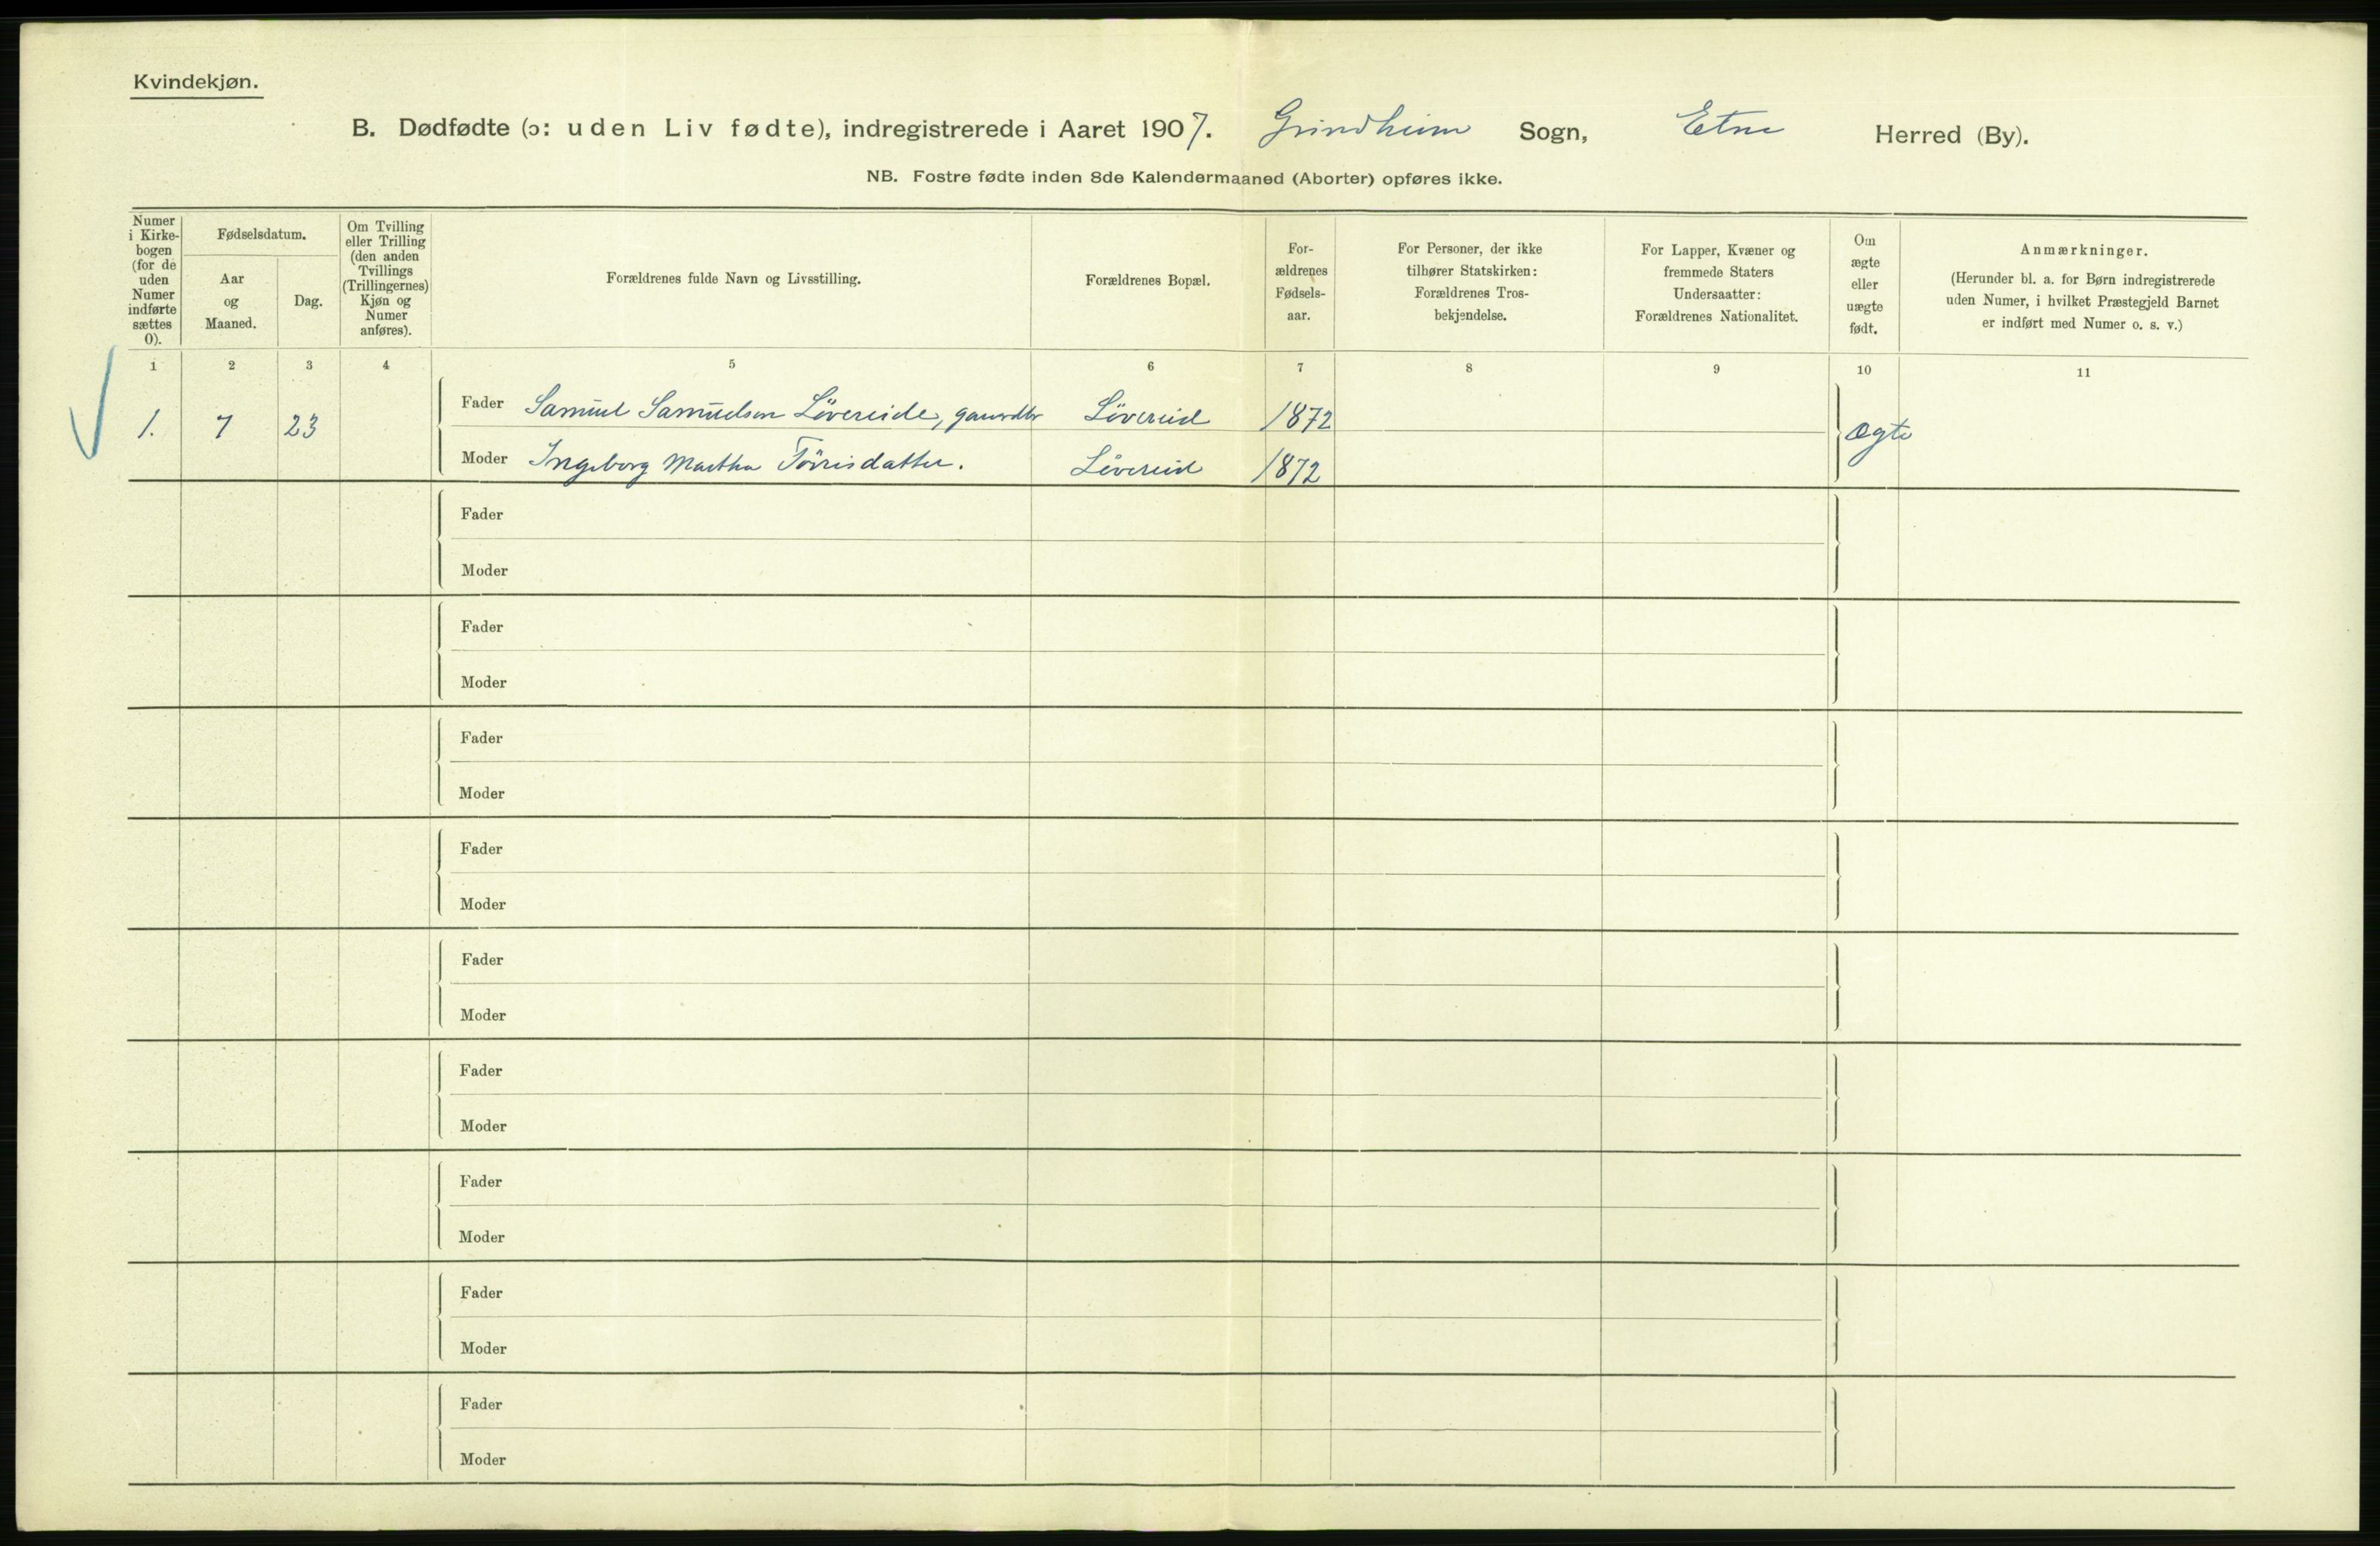 Kvindekjøn.
B. Dødfødte (ɔ: uden Liv fødte), indregistrerede i Aaret 1907. Grindheim Sogn, Etne Herred (By).
NB. Fostre fødte inden 8de Kalendermaaned (Aborter) opføres ikke.
Numer
i Kirke-
bogen
(for de
uden
Numer
indførte
sættes
0).
Fødselsdatum.
Aar
og
Maaned.
Dag.
Om Tvilling
eller Trilling
(den anden
Tvillings
(Trillingernes)
Kjøn og
Numer
anføres).
Forældrenes fulde Navn og Livsstilling.
Forældrenes Bopæl.
For-
ældrenes
Fødsels-
aar.
For Personer, der ikke
tilhører Statskirken:
Forældrenes Tros-
bekjendelse.
For Lapper, Kvæner og
fremmede Staters
Undersaatter:
Forældrenes Nationalitet.
Om
ægte
eller
uægte
født.
Anmærkninger.
(Herunder bl. a. for Børn indregistrerede
uden Numer, i hvilket Præstegjeld Barnet
er indført med Numer o. s. v.)
1 2 3 4 5 6 7 8 9 10 11
1. 7 23
Fader Samuel Samuelsen Løvereide, Løvereid 1872
Moder Ingeborg Martha Tørrisdatter. Løvereid 1872
Ægte
Fader
Moder
Fader
Moder
Fader
Moder
Fader
Moder
Fader
Moder
Fader
Moder
Fader
Moder
Fader
Moder
Fader
Moder